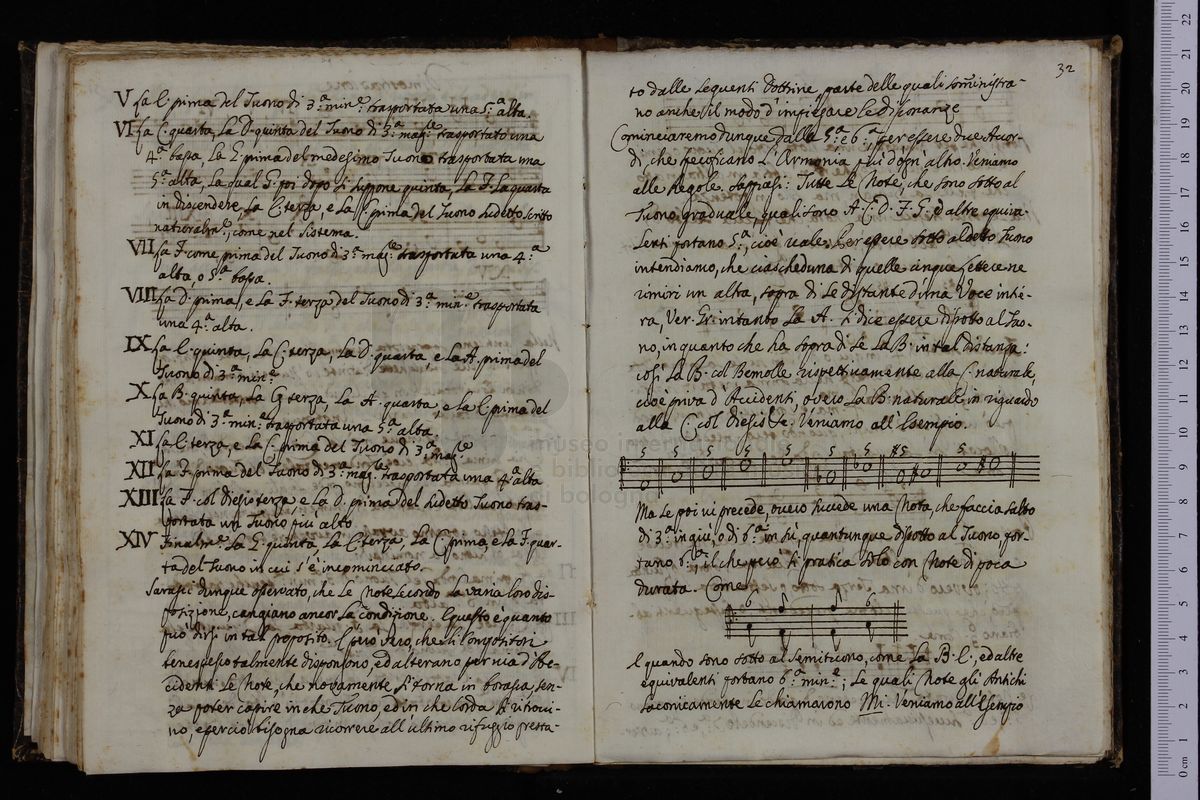 V fa l' prima del Tuono di 3.ª min.e trasportata una 5.ª alta.
VI fa C. quarta, La D. quinta del Tuono di 3.ª mag.e trasportato una
4.ª bassa, La E. prima del medesimo Tuono trasportata una
5.ª alta, La qual G. poi dopo si suppone quinta, La F. La quarta
in discendere, La C. terza, e La prima del Tuono sudetto scritto
naturalm.e, come nel Sistema.
VII fa F. come prima del Tuono di 3.ª mag.e trasportata una 4.ª
alta, o 5.ª bassa.
VIII fa D. prima, e La F. terza del Tuono di 3.ª min.e trasportata
una 4.ª alta.
IX fa E. quinta, La C. terza, La D. quarta, e La A. prima del
Tuono di 3.ª min.e
X fa B. quinta, La G. terza, La A. quarta, e La E. prima del
Tuono di 3.ª min.e trasportata una 5.ª alta.
XI fa E. terza, e La C. prima del Tuono di 3.ª mag.e
XII fa F. prima del Tuono di 3.ª mag.e trasportata una 4.ª alta
XIII fa F. col diesis terza e La D. prima del sudetto Tuono tras-
portata un Tuono più alto
XIV Finalm.e La G. quinta, La E. terza, La C. prima, e La F. quar-
ta del Tuono in cui s'è incominciato.
Sarassi dunque osservato, che Le Note secondo La varia loro dis-
posizione, cangiano ancor La condizione. E questo è quanto
può dirsi in tal proposito. E però vero, che li Compositori
bene spesso talmente dispongono, ed alterano per via d'Ac-
cidenti Le Note, che novamente si torna in borasca, sen-
za poter capire in che Tuono, ed in che Corda si ritrovi-
no, e perciò bisogna ricorrere all'ultimo rifuggio presta-
32
to dalle seguenti Dottrine, parte delle quali somministra-
no anche il modo d'impiegare Le dissonanze
Cominciaremo dunque dalla 5.ª e 6.ª, per essere due Accor-
di, che specificano L'Armonia più d'ogn'altro. Veniamo
alle Regole. Sappiasi: Tutte Le Note, che sono sotto al
Tuono graduale, quali sono A. C. D. F. G. ed altre equiva-
lenti portano 5.ª, cioè vale, Per essere sotto al detto Tuono
intendiamo, che ciascheduna di quelle cinque Lettere ne
rimiri un alta, sopra di se distante d'una Voce inte-
ra, Ver. Gr. intanto La A. si dice essere disotto al Tuo-
no, in quanto che ha sopra di se La B. in tal distanza:
così La B. col Bemolle rispettivamente alla C. naturale,
cioè priva d'Accidenti, ovvero La B. naturale in riguardo
alla C. col diesis &c. Veniamo all'Esempio.
5 5 5 5 5 5 5 #5 5
Ma se poi vi precede, ovvero succede una Nota, che faccia salto
di 3.ª in giù, o di 6.ª in sù, quantunque disotto al Tuono por-
tano 6.ª, il che però si pratica solo con Note di poca
durata. Come
6 6 6 6
E quando sono sotto al Semituono, come La B. E., ed altre
equivalenti portano 6.ª min.e; Le quali Note gli Antichi
Laconicamente Le chiamarono Mi. Veniamo all'Esempio